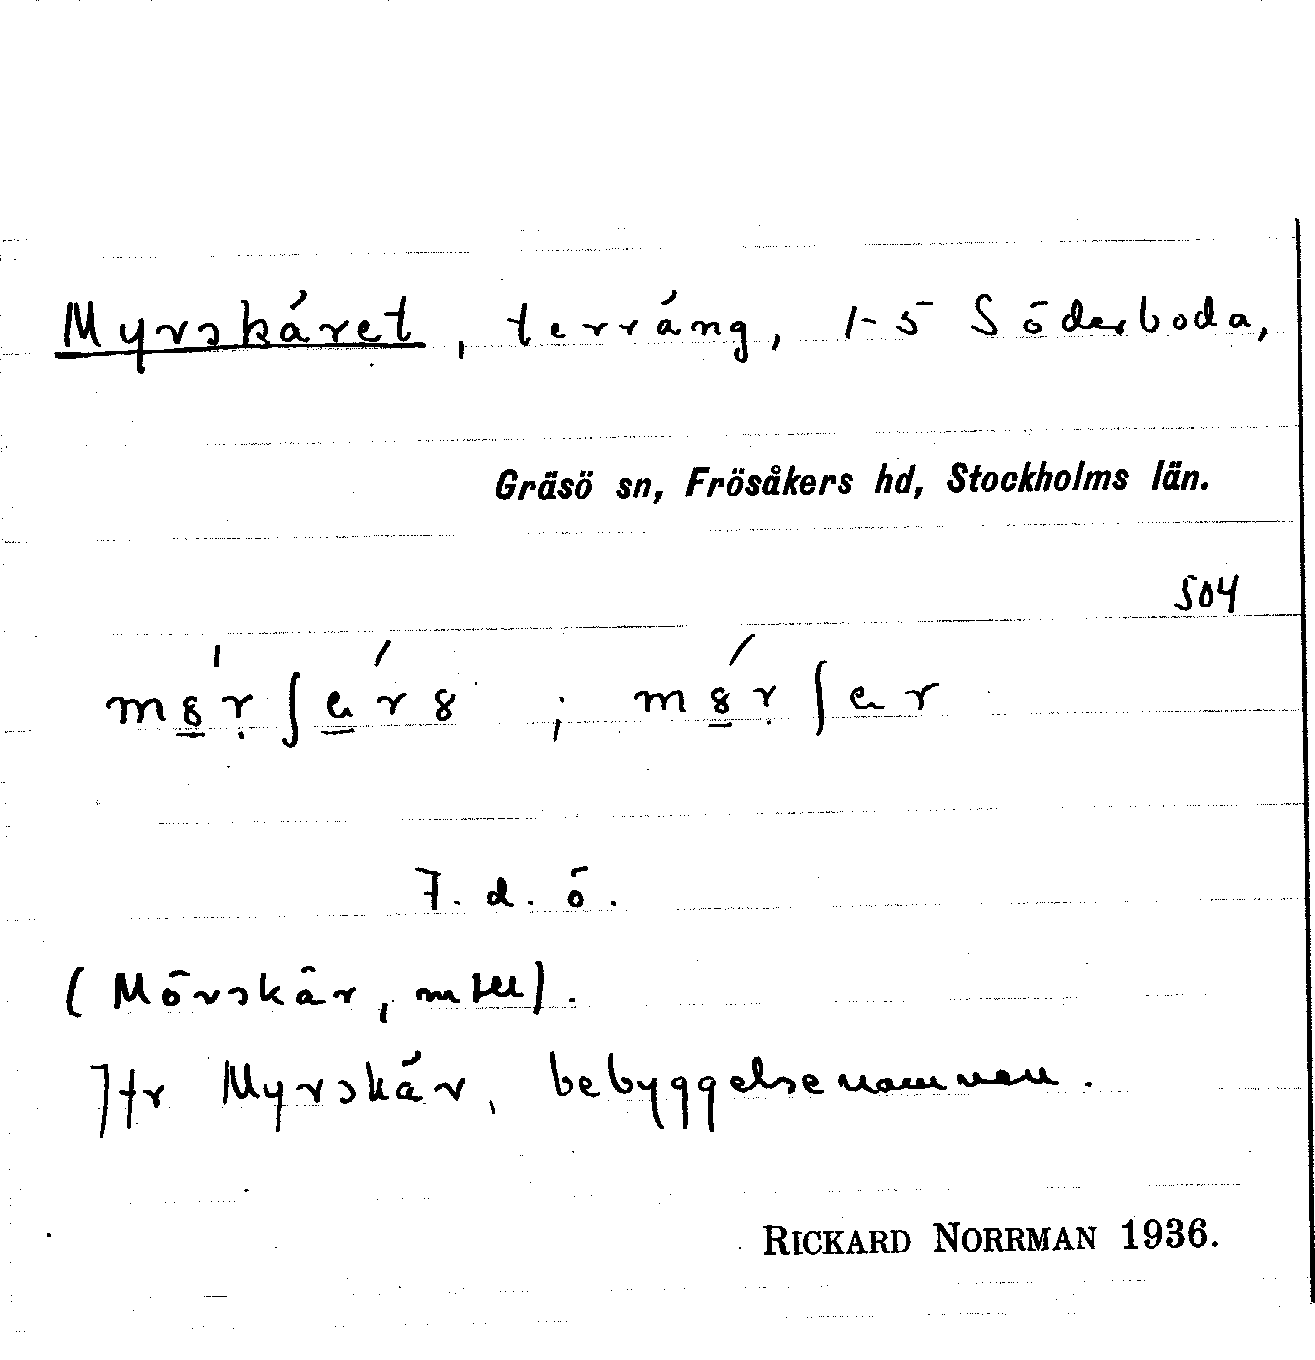 Myrskäret, terräng, 1-5 Söderboda,
Gräsö sn, Frösåkers hd, Stockholms län.
504
F. d. ö.
(Mörskär, mtll).
Jfr Myrskär, bebyggelsenamnen.
RICKARD NORRMAN 1936.